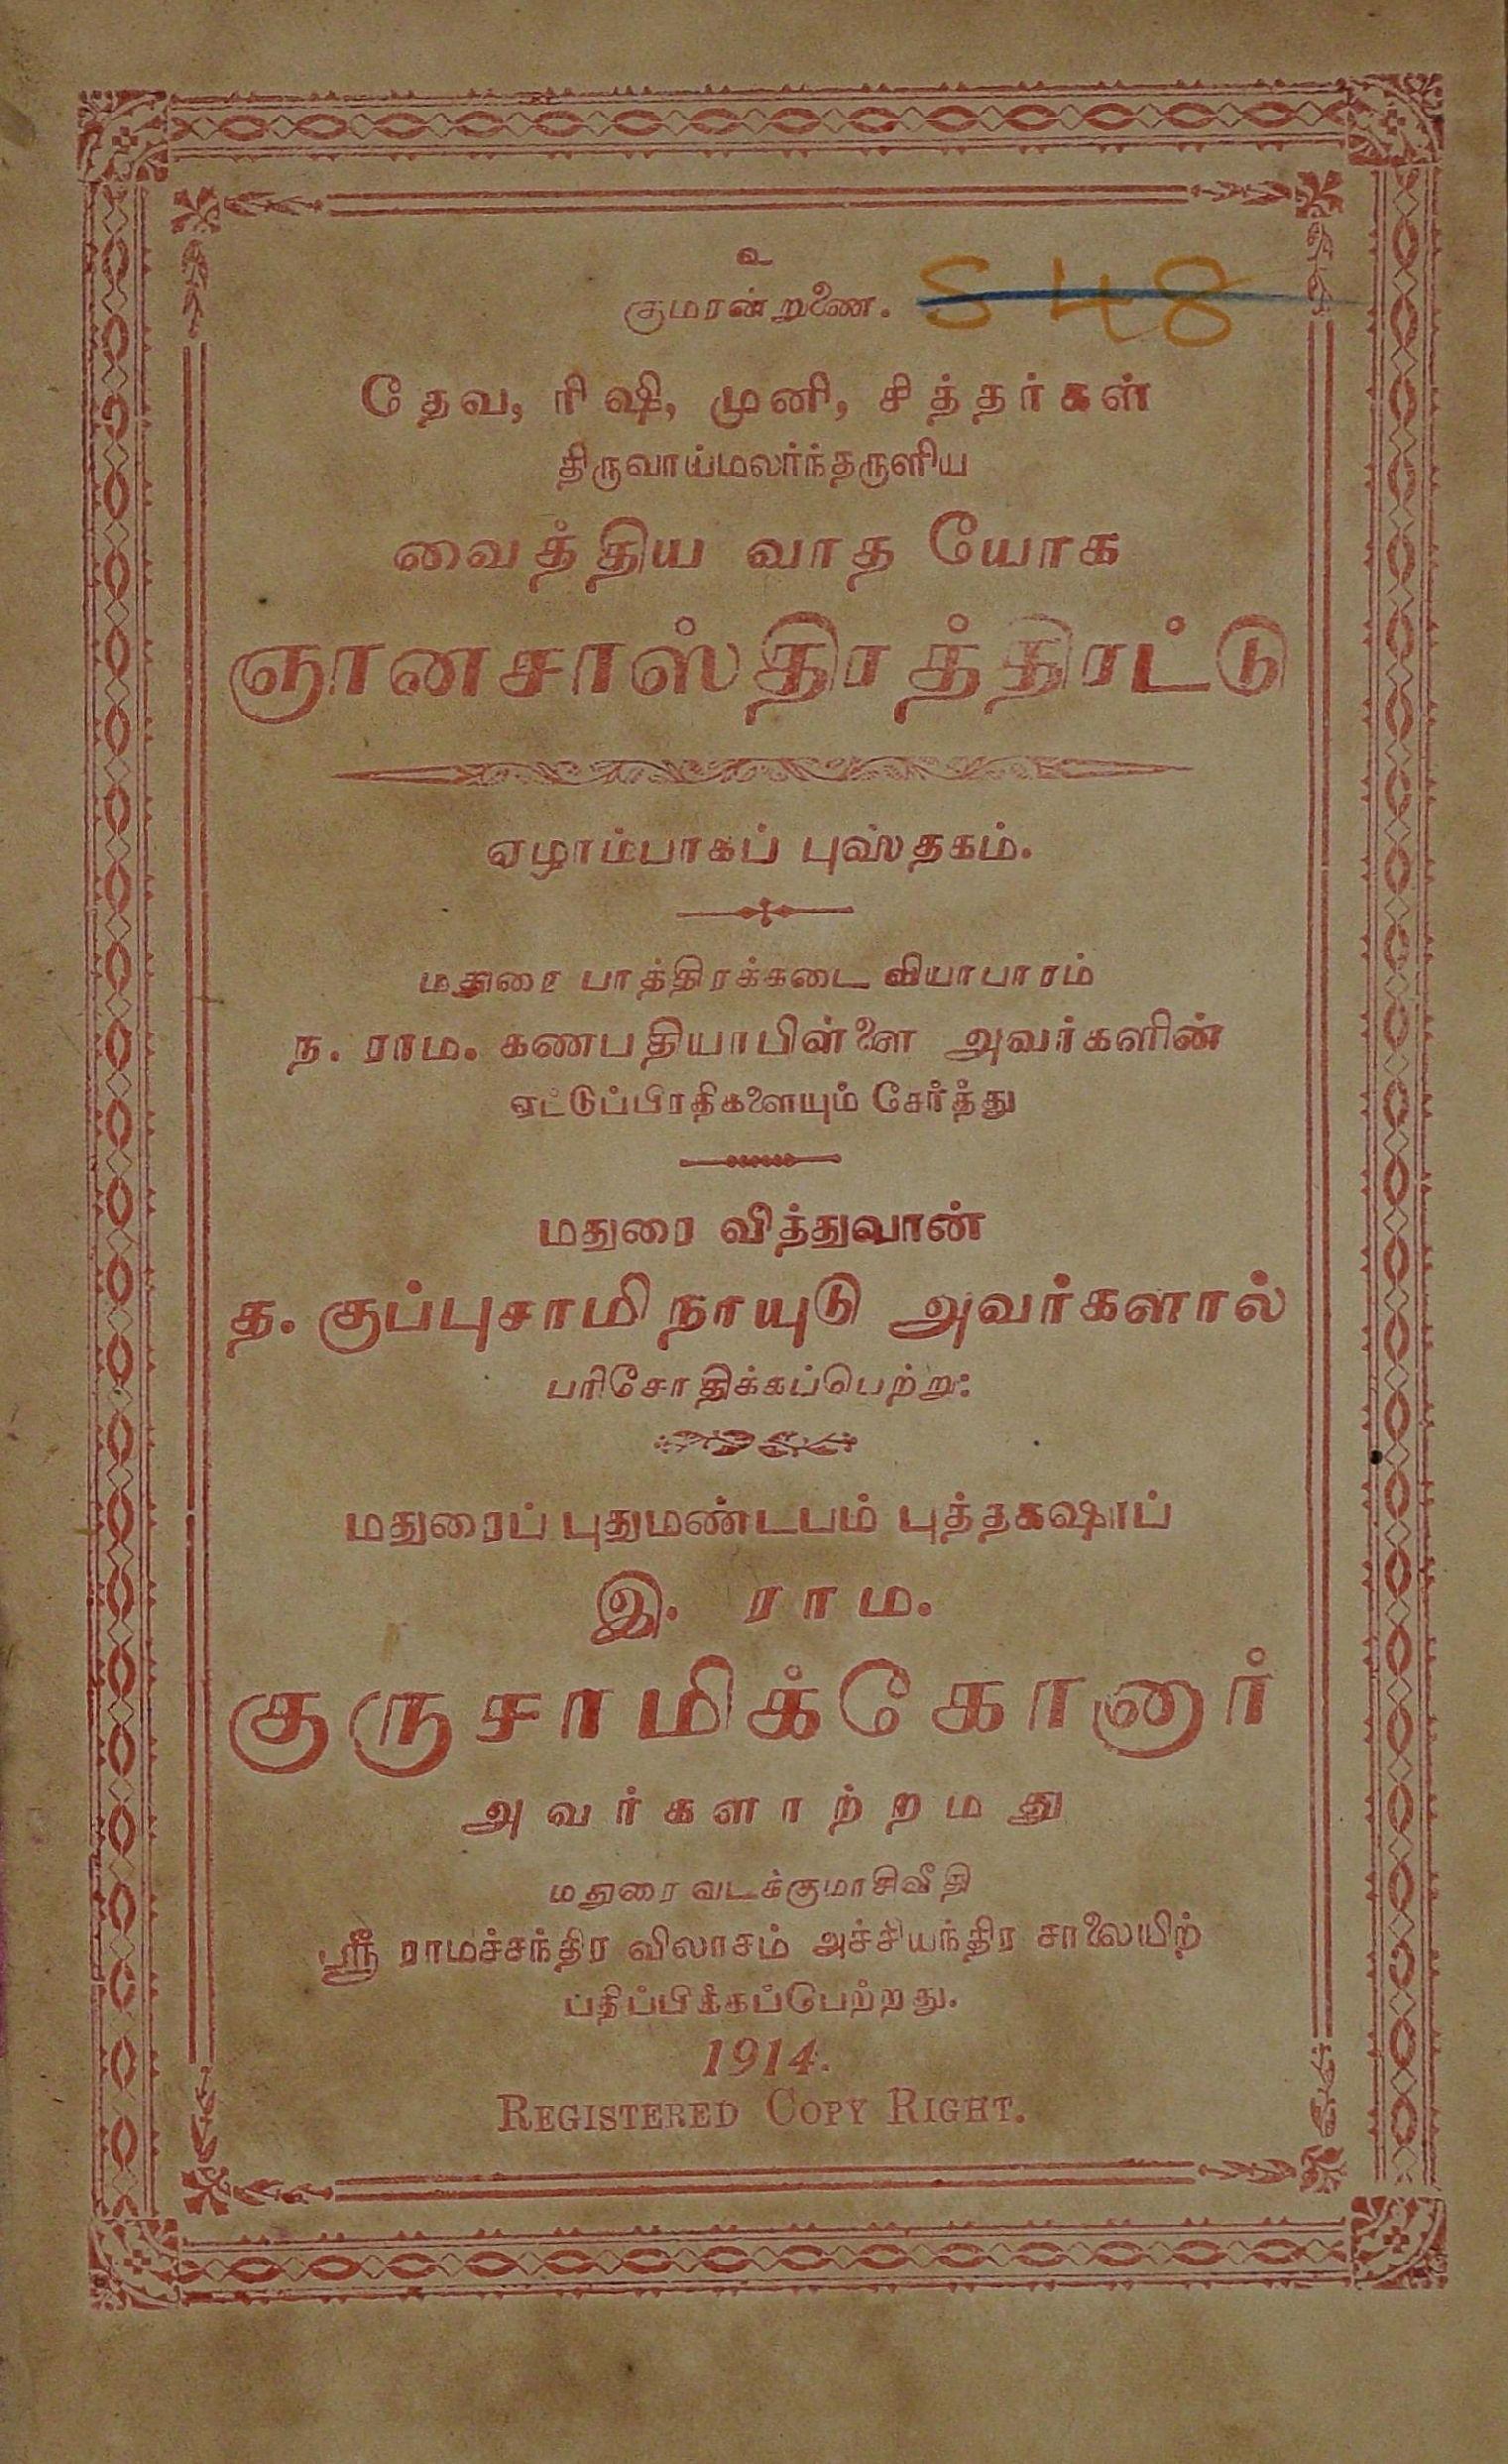 உ
குமரன்றுணை. S 48
தேவ, ரிஷி, முனி, சித்தர்கள்
திருவாய்மலர்ந்தருளிய
வைத்திய வாத யோக
ஞானசாஸ்திரத்திரட்டு
ஏழாம்பாகப் புஸ்தகம்.
மதுரை பாத்திரக்கடை வியாபாரம்
ந. ராம. கணபதியாபிள்ளை அவர்களின்
ஏட்டுப்பிரதிகளையும் சேர்த்து
மதுரை வித்துவான்
த. குப்புசாமி நாயுடு அவர்களால்
பரிசோதிக்கப்பெற்று:
மதுரைப் புதுமண்டபம் புத்தகஷாப்
இ. ராம.
குருசாமிக்கோனார்
அவர்களாற்றமது
மதுரை வடக்குமாசிவீதி
ஸ்ரீ ராமச்சந்திர விலாசம் அச்சியந்திர சாலையிற்
பதிப்பிக்கப்பெற்றது.
1914.
REGISTERED COPY RIGHT.